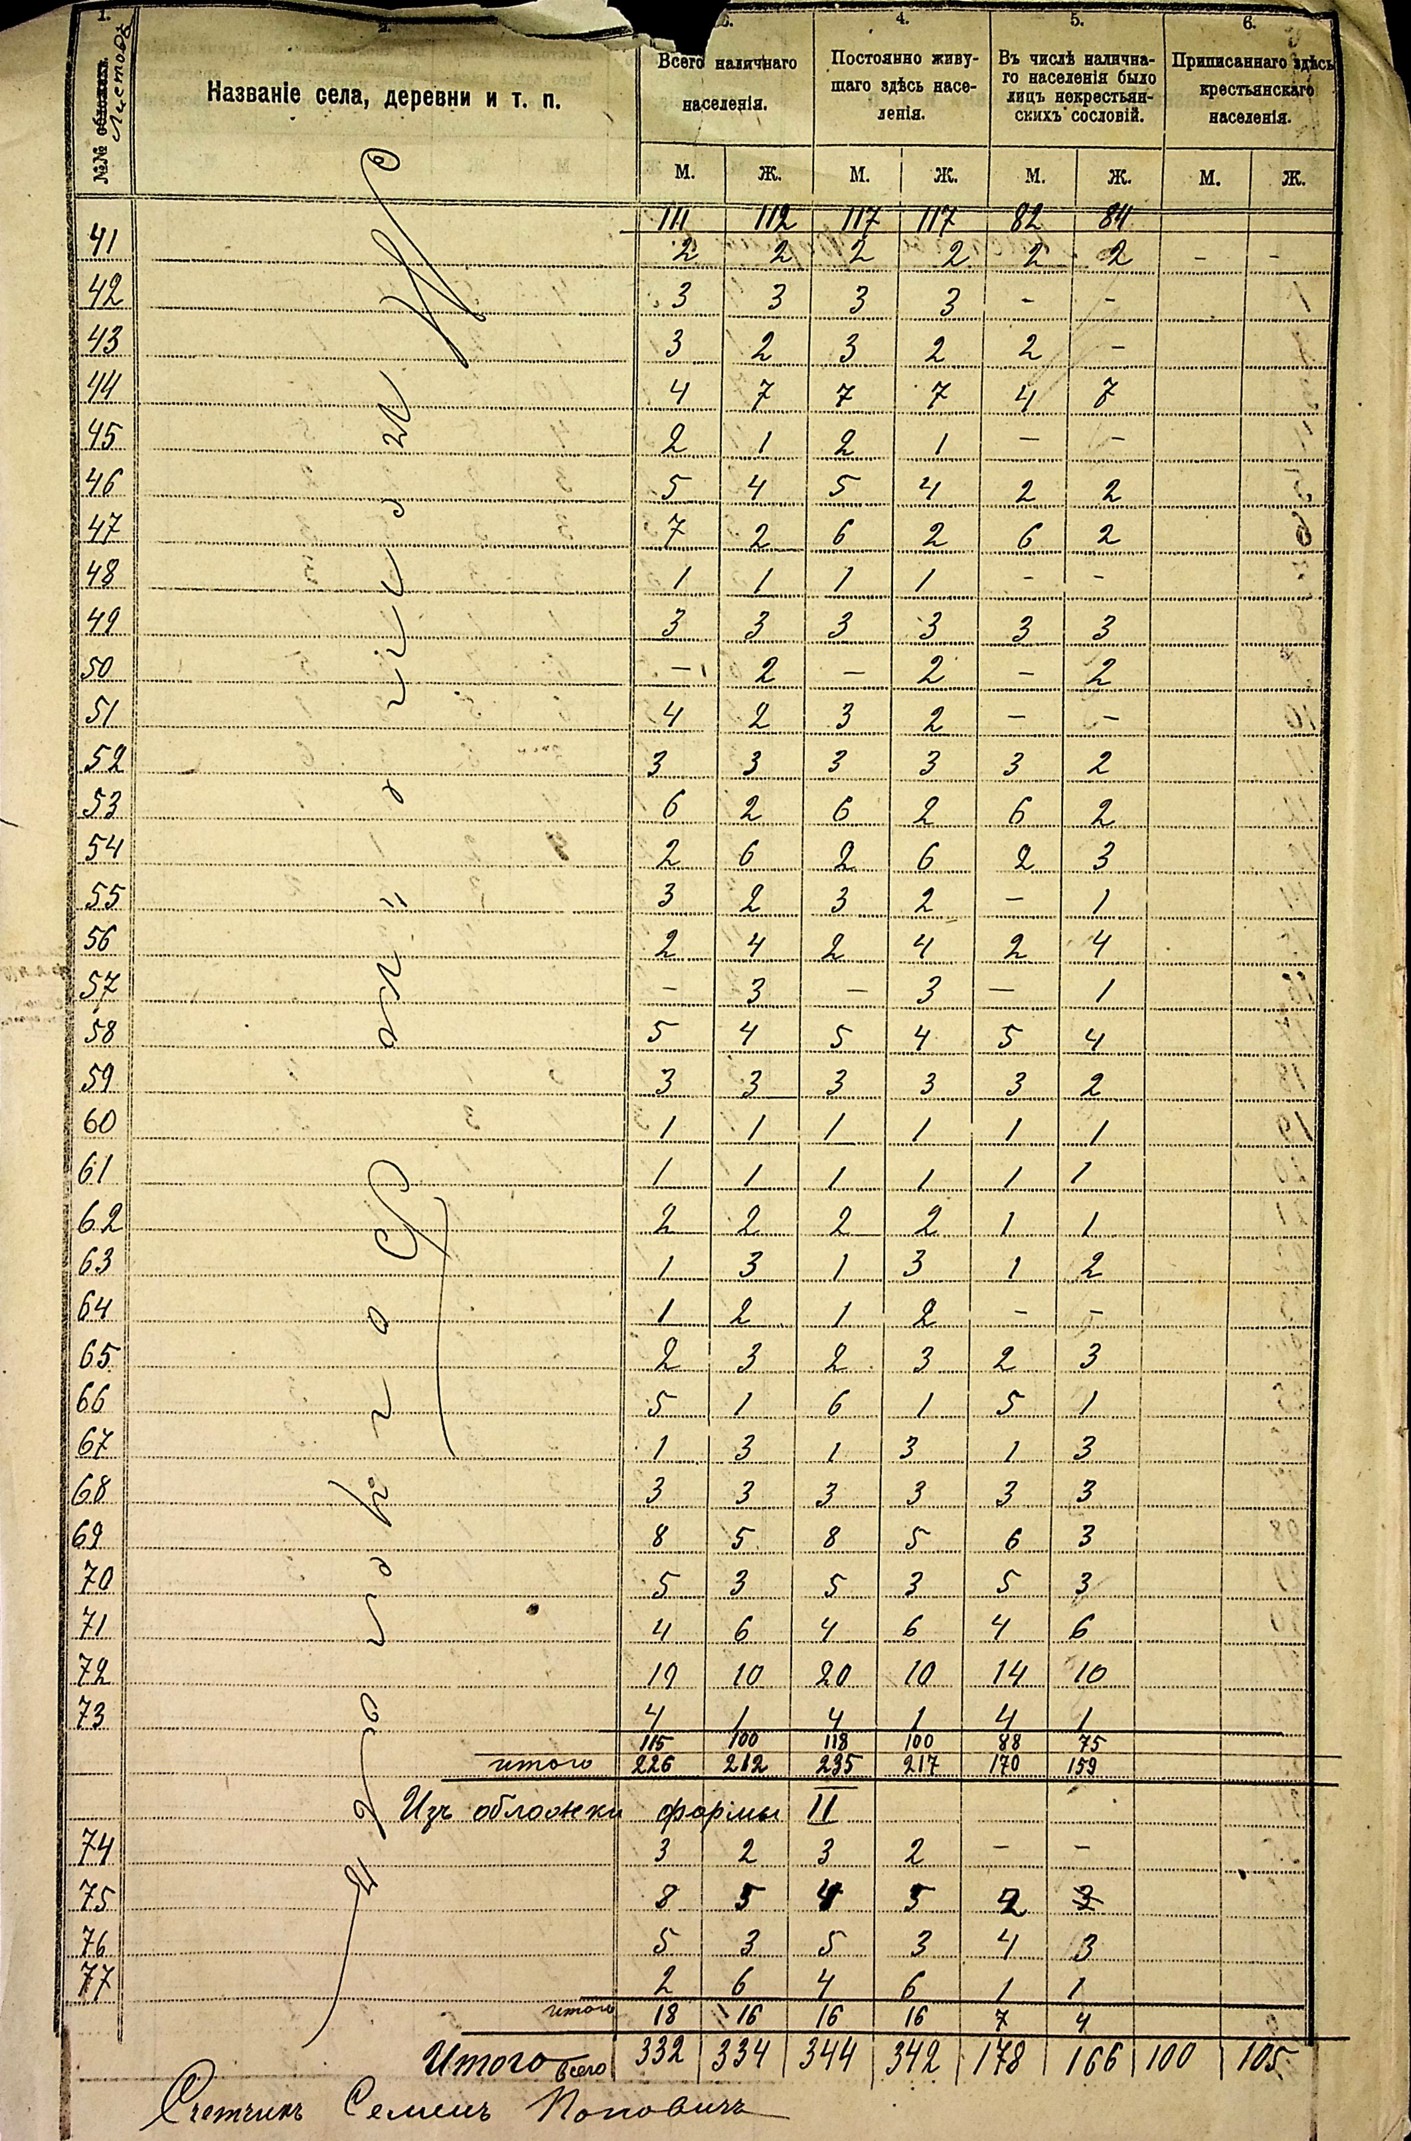 1. 2. 3. 4. 5. 6.
№№ обложекъ. Листовъ
Названіе села, деревни и т. п.
Всего наличнаго населенія.
Постоянно живущаго здѣсь населенія.
Въ числѣ наличнаго населенія было лицъ некрестьянскихъ сословій.
Приписаннаго здѣсь крестьянскаго населенія.
М. Ж. М. Ж. М. Ж. М. Ж.
111 112 117 117 82 84
41 2 2 2 2 2 2 - -
42 3 3 3 3 - -
43 3 2 3 2 2 -
44 4 7 7 7 4 7
45 2 1 2 1 - -
46 5 4 5 4 2 2
47 7 2 6 2 6 2
48 1 1 1 1 - -
49 3 3 3 3 3 3
50 - 2 - 2 - 2
51 4 2 3 2 - -
52 3 3 3 3 3 2
53 6 2 6 2 6 2
54 2 6 2 6 2 3
55 3 2 3 2 - 1
56 2 4 2 4 2 4
57 - 3 - 3 - 1
58 5 4 5 4 5 4
59 3 3 3 3 3 2
60 1 1 1 1 1 1
61 1 1 1 1 1 1
62 2 2 2 2 1 1
63 1 3 1 3 1 2
64 1 2 1 2 - -
65 2 3 2 3 2 3
66 5 1 6 1 5 1
67 1 3 1 3 1 3
68 3 3 3 3 3 3
69 8 5 8 5 6 3
70 5 3 5 3 5 3
71 4 6 4 6 4 6
72 19 10 20 10 14 10
73 4 1 4 1 4 1
115 100 118 100 88 75
итого 226 212 235 217 170 159
Изъ обложки формы II
74 3 2 3 2 - -
75 8 5 4 5 2 3
76 5 3 5 3 4 3
77 2 6 4 6 1 1
итого 18 16 16 16 7 4
Итого всего 332 334 344 342 178 166 100 105
Счетчикъ Семенъ Поповичъ